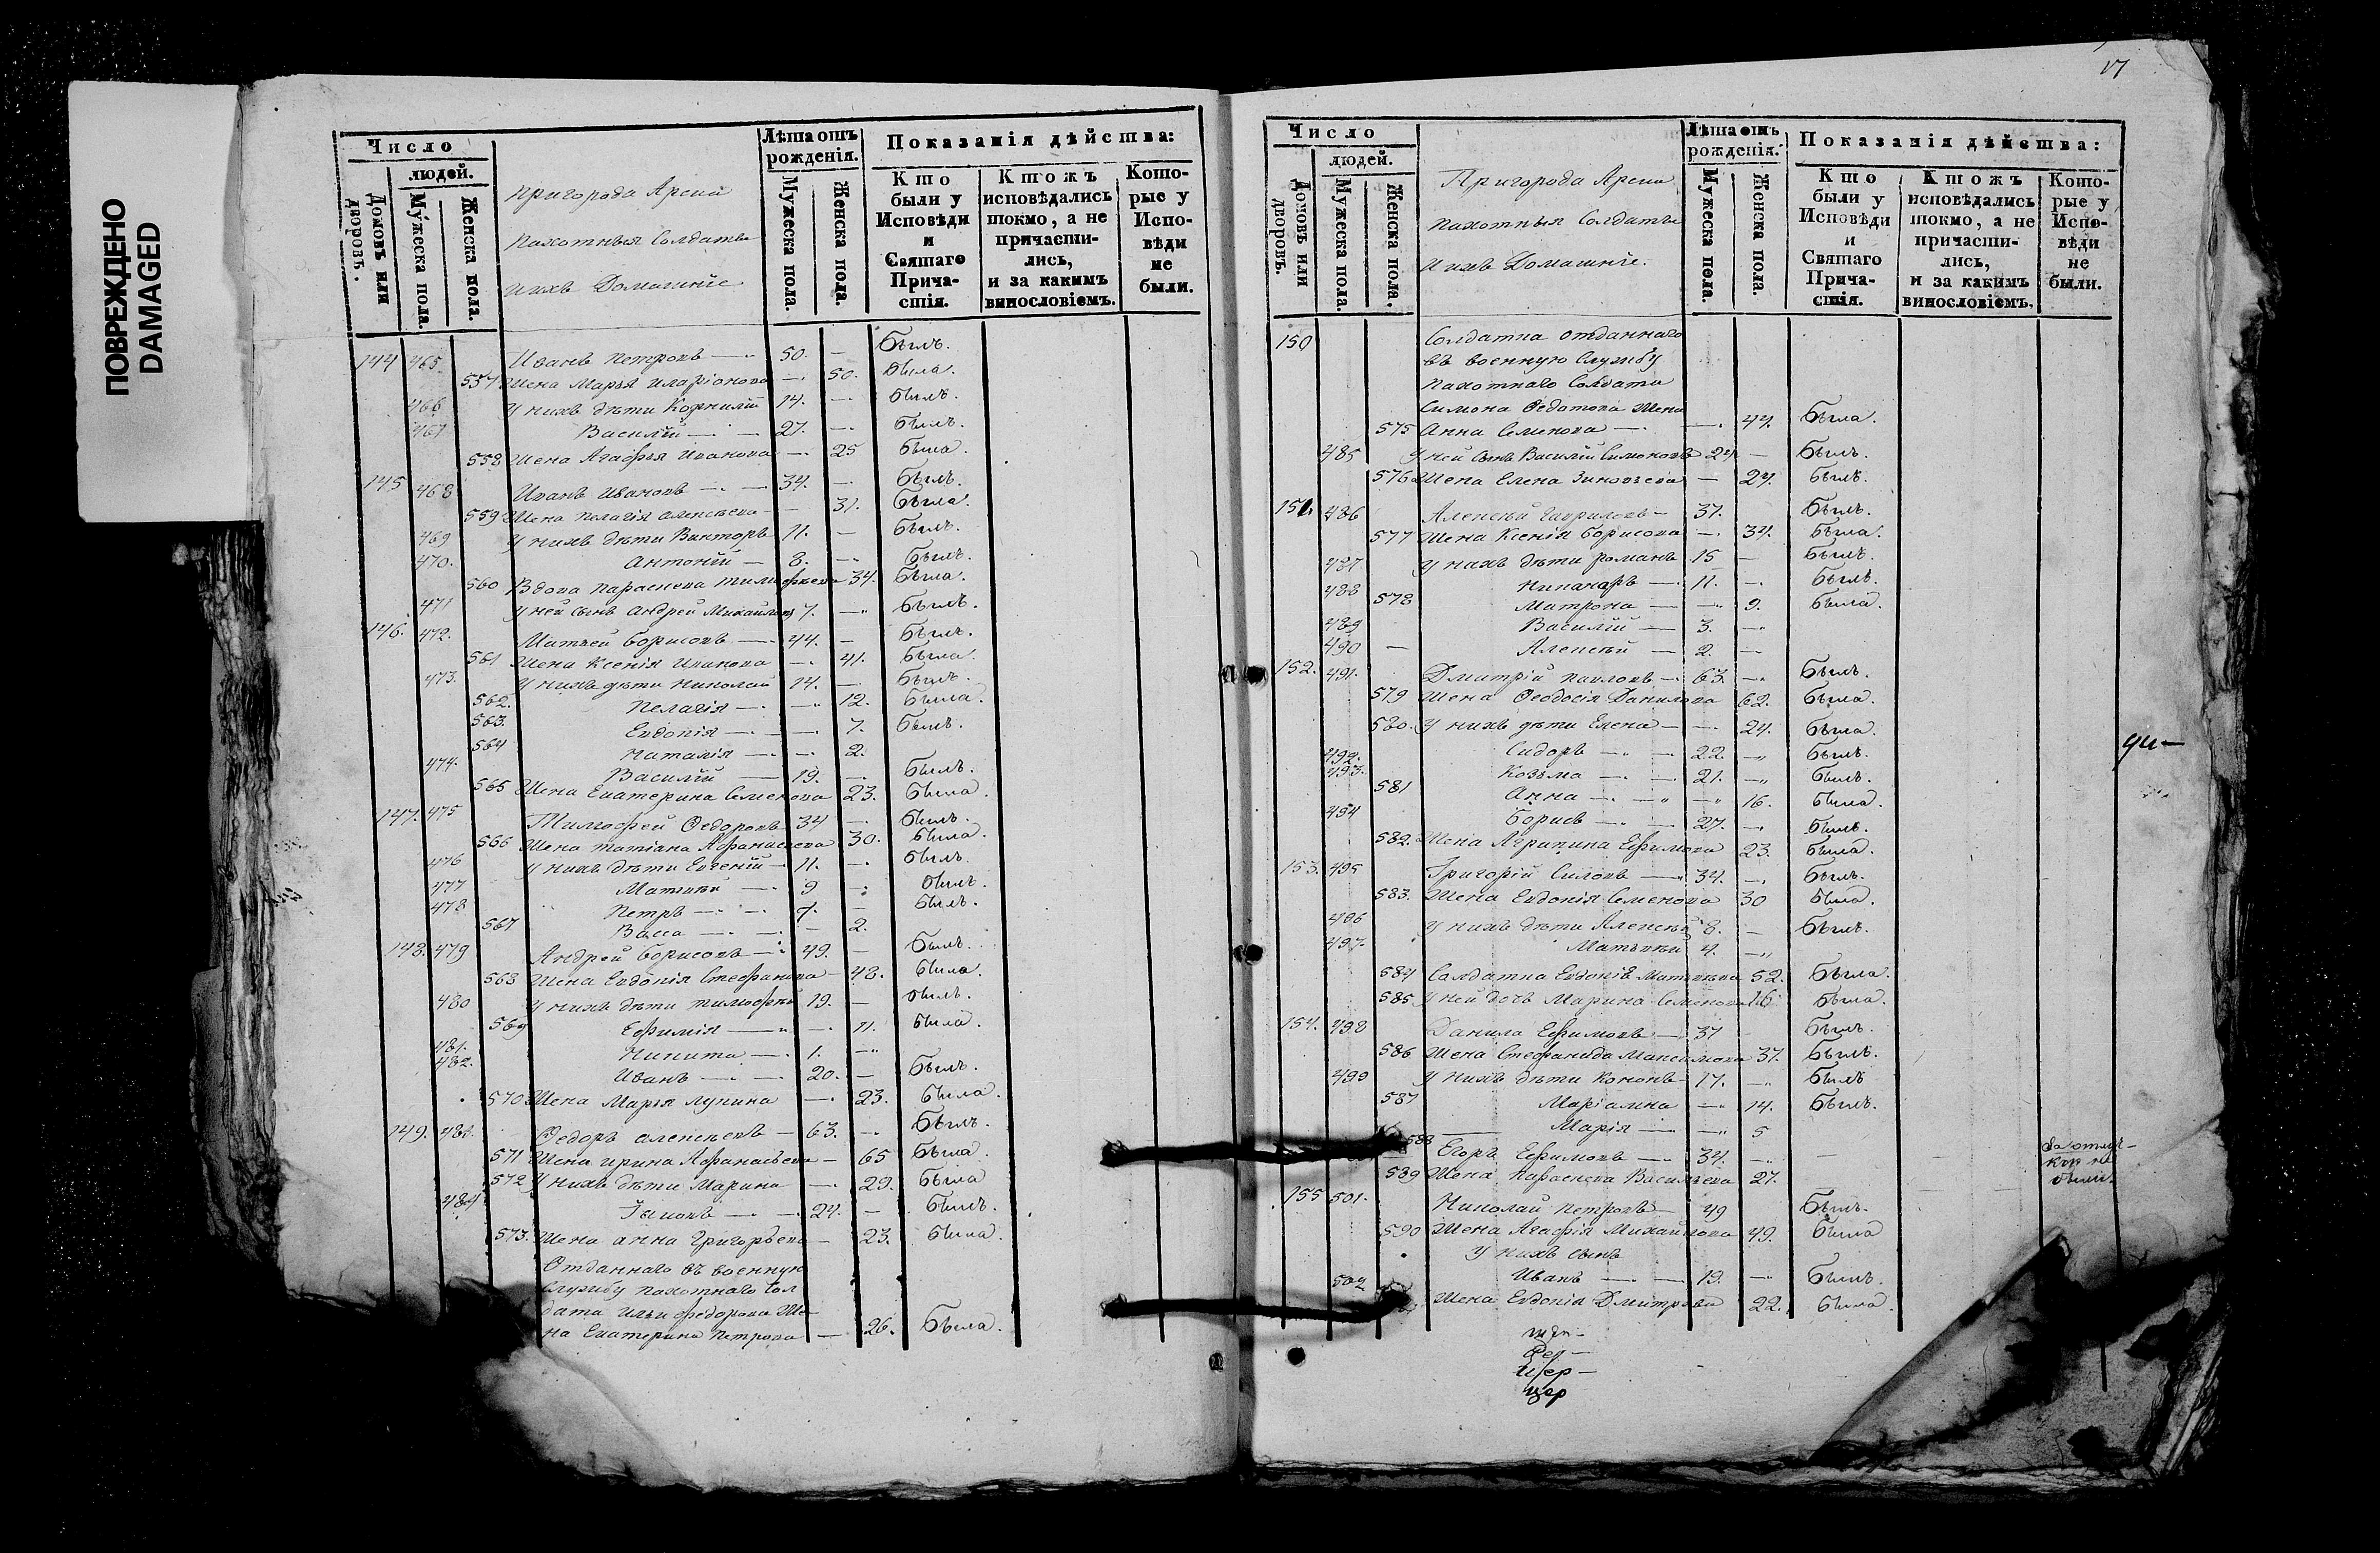 ПОВРЕЖДЕНО
DAMAGED
Число
людей.
Домовъ или дворовъ.
Мужеска пола.
Женска пола.
Пригорода Арска
пахотныя Солдаты
и ихъ Домашніе
Лѣта отъ рожденія.
Мужеска пола.
Женска пола.
Показанія дѣйства:
Кто были у Исповѣди и Святаго Причастія.
Ктожъ исповѣдались токмо, а не причастились, и за какимъ винословіемъ.
Которые у Исповѣди не были.
144 465 Иванъ Петровъ — 50. — Былъ.
557 Жена Марья Иларіонова — 50. Была.
466 У нихъ дѣти Корнилій 14. — Былъ.
467 Василій — 27. — Былъ.
558 Жена Агафья Иванова — 25 Была.
145 468 Иванъ Ивановъ — 34. — Былъ.
559 Жена Пелагія Алексѣева — 31. Была.
469 У нихъ дѣти Викторъ 11. — Былъ.
470. Антоній — 8. — Былъ.
560 Вдова Параскева Тимофеева 34. Была.
471 У ней сынъ Андрей Михайловъ 7. — Былъ.
146. 472. Матвей Борисовъ — 44. — Былъ.
561 Жена Ксенія Иванова — 41. Была.
473. У нихъ дѣти Николай 14. — Былъ.
562. Пелагія — 12. Была.
563. Евдокія — 7. Былъ.
564 Наталія — 2.
474. Василій — 19. — Былъ.
565 Жена Екатерина Семенова 23. Была.
147. 475 Тимофей Федоровъ 34 — Былъ.
566 Жена Татіана Афанасьева 30. Была.
476 У нихъ дѣти Евгеній — 11. — Былъ.
477 Матвѣй — 9 — Былъ.
478 Петръ — 7. — Былъ.
567 Васса — 2.
148. 479 Андрей Борисовъ — 49. — Былъ.
568 Жена Евдокія Стефанова — 48. Была.
480 У нихъ дѣти Тимофей 19. — Былъ.
569 Ефимія — 11. Была.
481. Никита — 1. —
482. Иванъ — 20. — Былъ.
570 Жена Марья Лукина — 23. Была.
149. Федоръ Алексѣевъ — 63. — Былъ.
571 Жена Ирина Афанасьева — 65 Была.
572 У нихъ дѣти Марина — 29. Была
484 Іаковъ — 24. — Былъ.
573. Жена Анна Григорьева — 23. Была.
Отданнаго въ военную
службу пахотнаго Сол
дата Ильи Федорова Же
на Екатерина Петрова — 26. Была.
17
Число
людей.
Домовъ или дворовъ.
Мужеска пола.
Женска пола.
Пригорода Арска
пахотныя Солдаты
и ихъ Домашніе.
Лѣта отъ рожденія.
Мужеска пола.
Женска пола.
Показанія дѣйства:
Кто были у Исповѣди и Святаго Причастія.
Ктожъ исповѣдались токмо, а не причастились, и за какимъ винословіемъ.
Которые у Исповѣди не были.
150 Солдатка отданнаго
въ военную службу
пахотнаго Солдата
Симона Федотова Жена
575 Анна Семенова — 47. Была.
485 У ней сынъ Василій Симоновъ 24 — Былъ.
576 Жена Елена Зиновьева — 24. Былъ.
151. 486 Алексѣй Гавриловъ — 37. Былъ.
577 Жена Ксенія Борисова — 34. Была.
487 У нихъ дѣти Романъ 15 — Былъ.
488 Никаноръ — 11. — Былъ.
578 Матрона — 9. Была.
489 Василій — 3. —
490 — Алексѣй — 2. —
152. 491. Дмитрій Павловъ — 63. — Былъ.
579 Жена Феодосія Данилова 62. Была.
580. У нихъ дѣти Елена — 24. Была.
492. Сидоръ — 22 — Былъ.
493. Козьма — 21. — Былъ.
581 Анна — 16. Была.
494 Борисъ — 27. — Былъ.
582. Жена Агрипина Ефимова 23. Была.
153. 495 Григорій Силовъ — 34. — Былъ.
583. Жена Евдокія Семенова 30 Была.
496 У нихъ дѣти Алексѣй 8. — Былъ.
497. Матвѣй 4. —
584 Салдатка Евдокія Матвѣева 52. Была.
585 У ней дочь Марина Семенова 16 Была.
154. 498 Данила Ефимовъ — 37 Былъ.
586 Жена Стефанида Максимова 37. Былъ.
499 У нихъ дѣти Кононъ — 17. — Былъ
587 Маріамна — 14. Былъ.
588 Марія — 5
Егоръ Ефимовъ — 34. — За отлуч-
кою не
были.
589 Жена Параскева Васильева 27.
155 501. Николай Петровъ — 49 Былъ.
590 Жена Агафія Михайлова 49. Была
У нихъ сынъ
502 Иванъ — 19. — Былъ.
Жена Евдокія Дмитрова 22. Была.